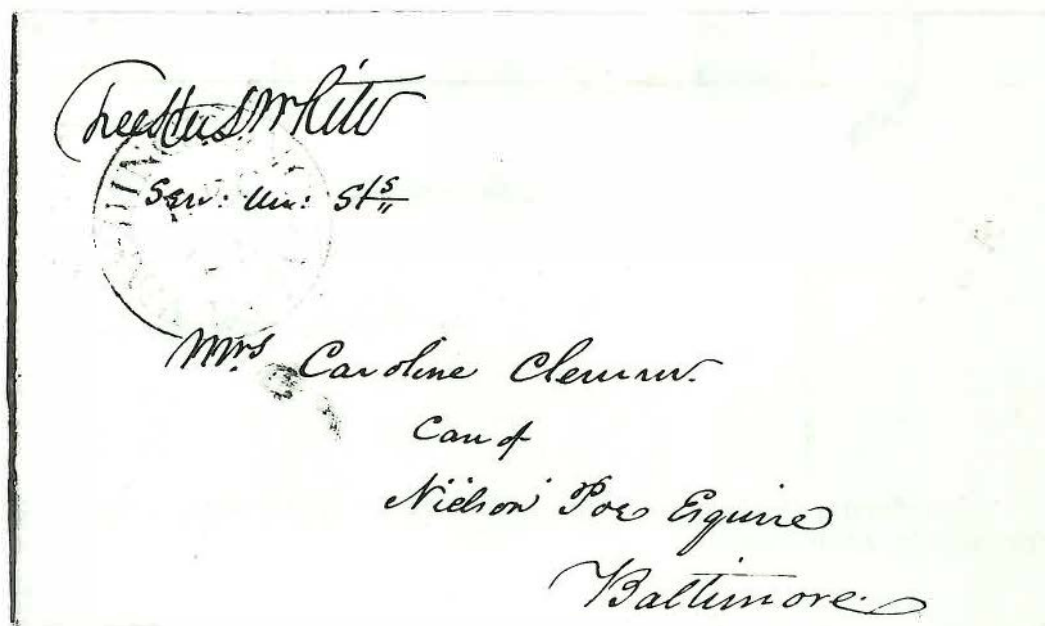 Free Hu. L. White
Sen: Un: Sts
Mrs Caroline Clemm.
Care of
Nielson Poe Esquire
Baltimore.